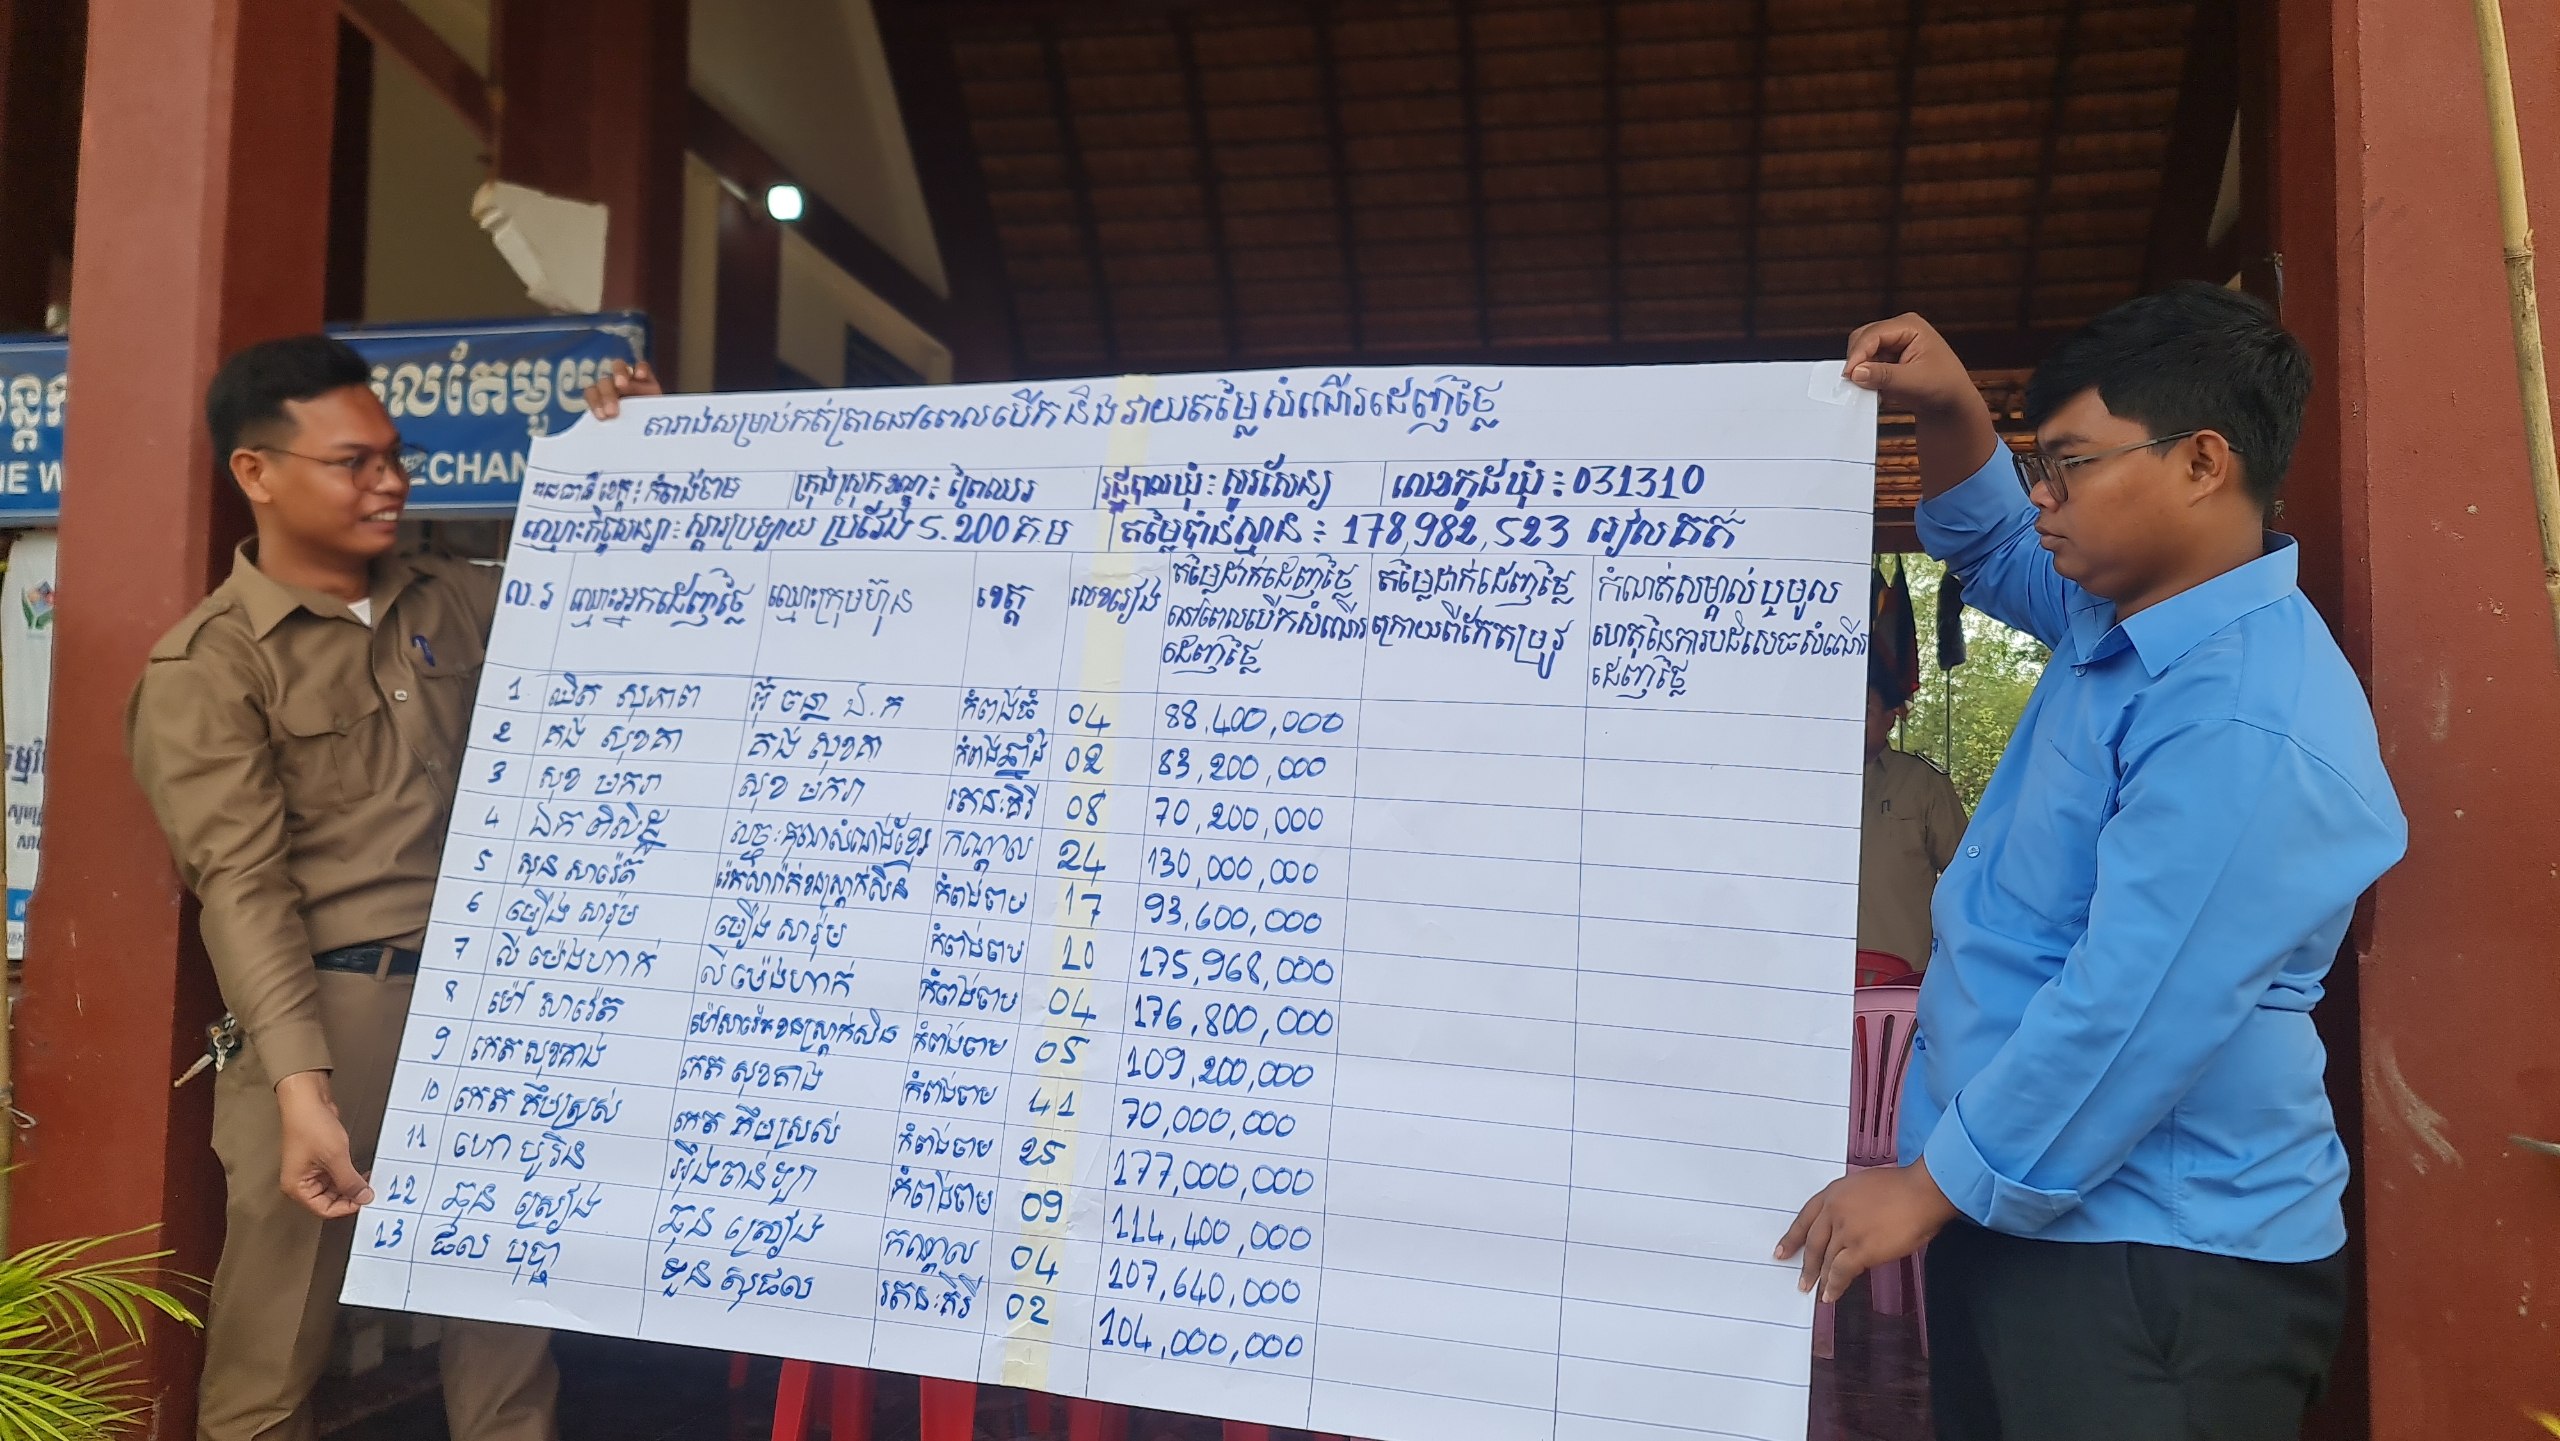 តារាងសម្រាប់កត់ត្រានៅពេលបើក និង វាយតម្លៃសំណើរដេញថ្លៃ
រាជធានី ខេត្ត: កំពង់ចាម ក្រុងស្រុកខណ្ឌ: ព្រៃឈរ រដ្ឋបាលឃុំ: សួរសែន្យ លេខកូដឃុំ: 031310
ឈ្មោះកិច្ចសន្យា: ស្តារប្រឡាយ ប្រវែង 5.200 គ.ម តម្លៃប៉ាន់ស្មាន: 178,982,523 រៀលគត់
ល.រ ឈ្មោះអ្នកដេញថ្លៃ ឈ្មោះក្រុមហ៊ុន ខេត្ត លេខរៀង តម្លៃដាក់ដេញថ្លៃ នៅពេលបើកសំណើរ ដេញថ្លៃ តម្លៃដាក់ដេញថ្លៃ ក្រោយពីកែតម្រូវ កំណត់សម្គាល់ ឬមូល ហេតុនៃការបដិសេធសំណើរ ដេញថ្លៃ
1 ឈិត សុភាព អ៊ុំ ចន្ថា ឯ.ក កំពង់ធំ 04 88,400,000
2 គង់ សុខគា គង់ សុខគា កំពង់ឆ្នាំង 02 83,200,000
3 សុខ មករា សុខ មករា រតនៈគិរី 08 70,200,000
4 ឯក ពិសិដ្ឋ លច្ចៈគុណសំណង់ខ្មែរ កណ្តាល 24 130,000,000
5 សុន សារ៉េត កំពង់ចាម 17 93,600,000
6 មឿង សារ៉ុម មឿង សារ៉ុម កំពង់ចាម 10 175,968,000
7 លី ម៉េងហាក់ លី ម៉េងហាក់ កំពង់ចាម 04 176,800,000
8 ម៉ៅ សារ៉េត ម៉ៅសារ៉េតខនស្ត្រាក់សិន កំពង់ចាម 05 109,200,000
9 កេត សុខគាង់ កេត សុខគាង់ កំពង់ចាម 41 70,000,000
10 កេត គឹមស្រស់ កេត គឹមស្រស់ កំពង់ចាម 25 177,000,000
11 ហោ បូរិន អ៊ឹងចាន់ឡា កំពង់ចាម 09 114,400,000
12 ឆុន ស្រៀង ឆុន ស្រៀង កណ្តាល 04 107,640,000
13 ផល បុប្ផា ទួន សុផល រតនៈគិរី 02 104,000,000
លតែមួយ
CHAN